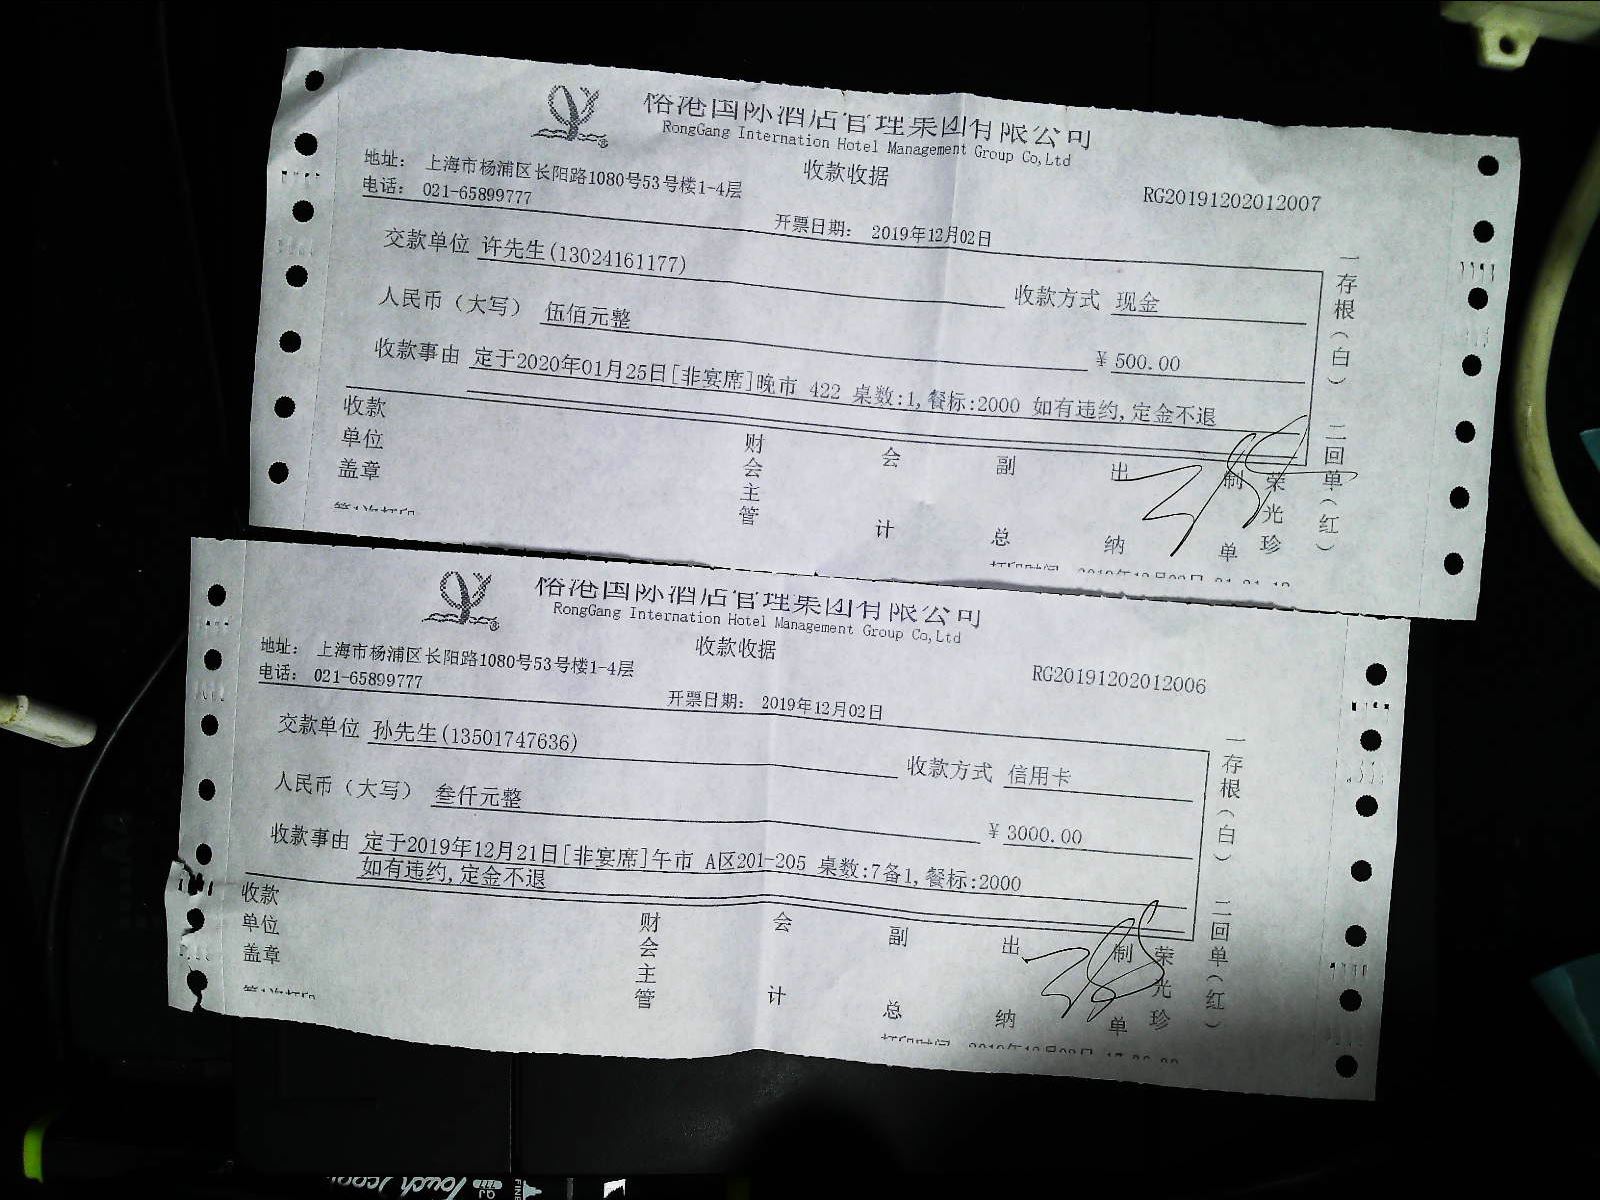 裕港国际酒店管理集团有限公司
RongGang International Hotel Management Group Co,Ltd
收款收据
地址： 上海市杨浦区长阳路1080号53号楼1-4层
电话： 021-65899777
RG20191202012007
开票日期： 2019年12月02日
交款单位 许先生(13024161177)
收款方式 现金
人民币（大写） 伍佰元整
¥ 500.00
收款事由 定于2020年01月25日[非宴席]晚市 422 桌数:1,餐标:2000 如有违约,定金不退
收款单位盖章
财会主管
会计
副总
出纳
制单
荣光珍
一存根（白） 二回单（红）
第1次打印
裕港国际酒店管理集团有限公司
RongGang International Hotel Management Group Co,Ltd
收款收据
地址： 上海市杨浦区长阳路1080号53号楼1-4层
电话： 021-65899777
RG20191202012006
开票日期： 2019年12月02日
交款单位 孙先生(13501747636)
收款方式 信用卡
人民币（大写） 叁仟元整
¥ 3000.00
收款事由 定于2019年12月21日[非宴席]午市 A区201-205 桌数:7备1,餐标:2000
如有违约,定金不退
收款单位盖章
财会主管
会计
副总
出纳
制单
荣光珍
一存根（白） 二回单（红）
第1次打印
Touch